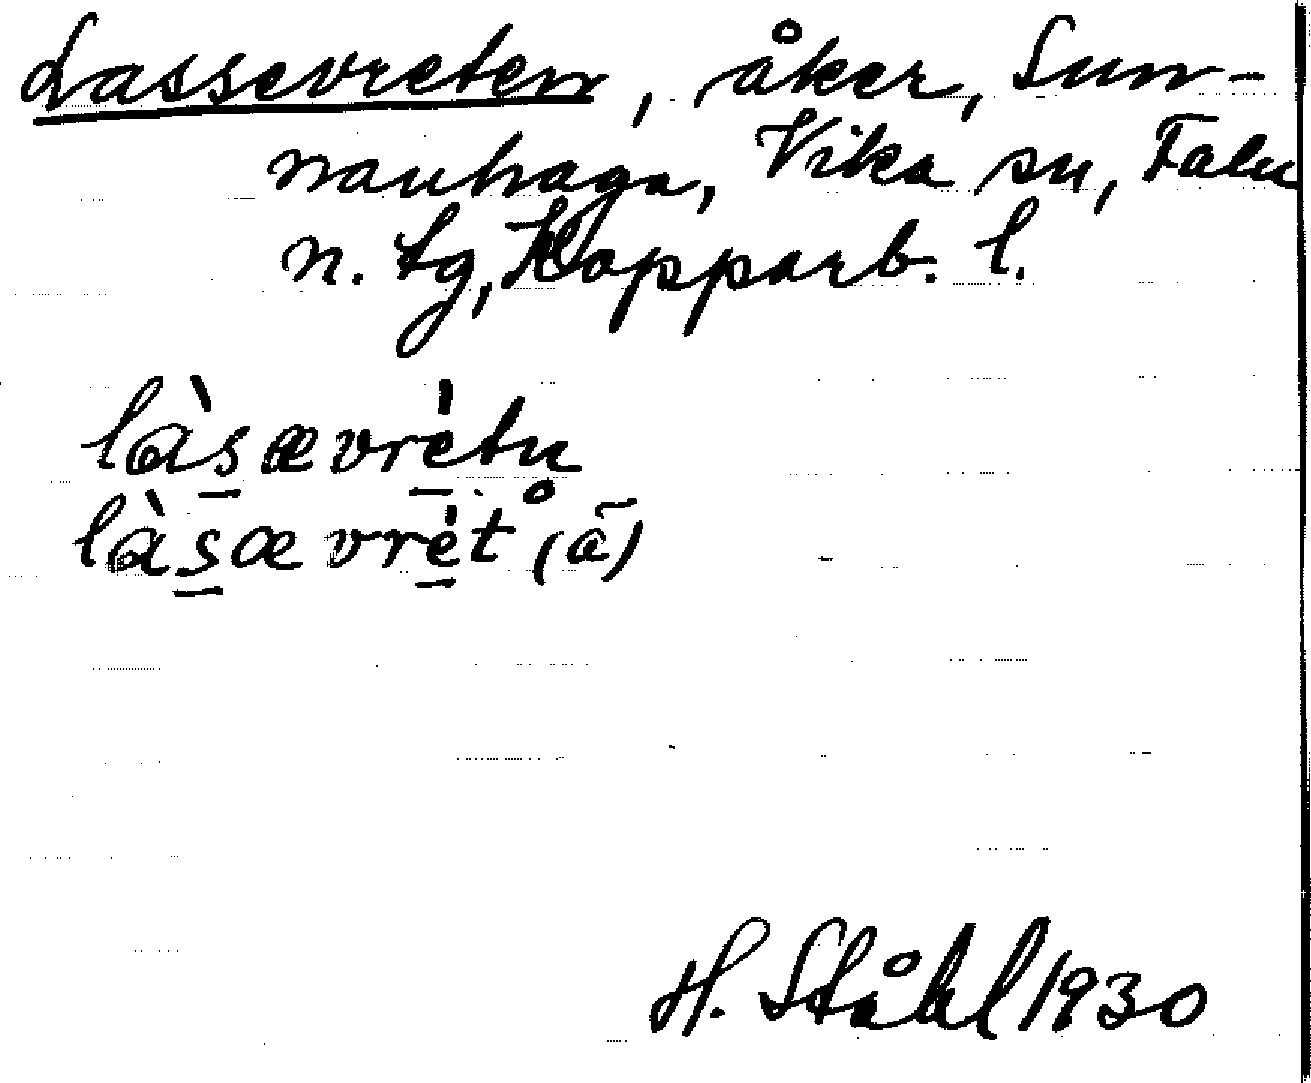 Lassevreten, åker, Sun-
nanhaga, Vika sn, Falu
n. tg, Kopparb. l.
làsævrètn
làsævrèt (å̄)
H. Ståhl 1930